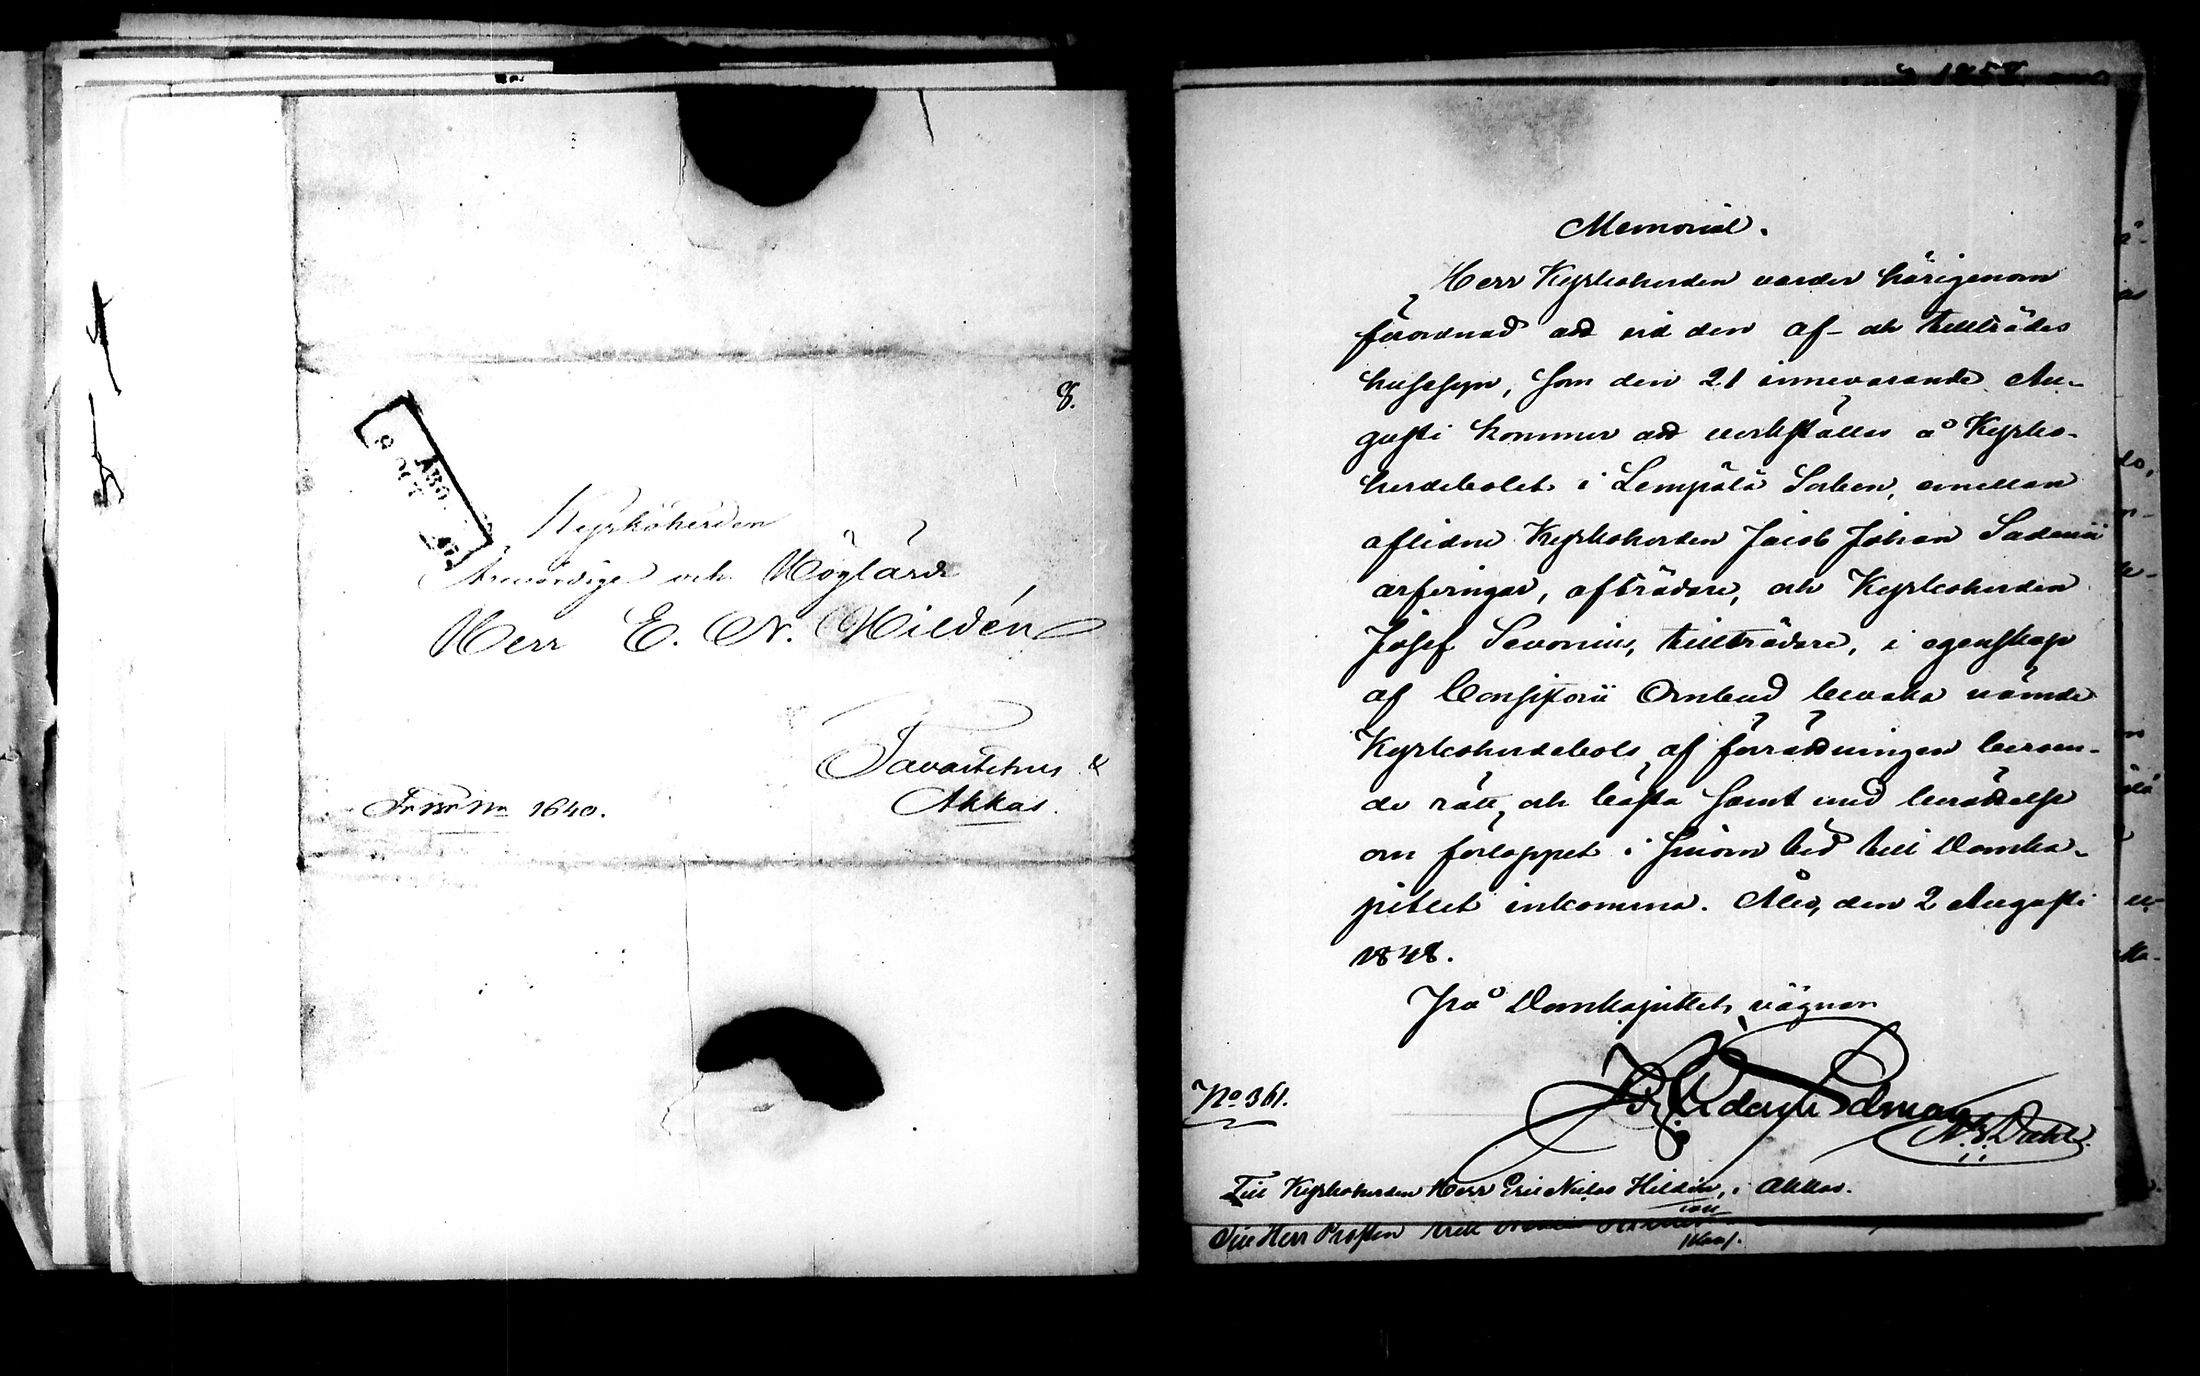 8.
ÅBO
8 OCT
Kyrkoherden
Ärevördige och Höglärde
Herr E. N. Hildén
Tavastehus &
Akkas.
1640.
Memorial.
Herr Kyrkoherden varder härigenom
förordnad att vid den af- och tillträdes
husesyn, som den 21 innevarande Au-
gusti kommer att verkställas å Kyrko-
herdebolet i Lempälä Socken, emellan
aflidne Kyrkoherden Jacob Johan Sadenii
arfvingar, afträdare, och Kyrkoherden
Josef Savonius, tillträdare, i egenskap
af Consistorii Ombud bevaka nämde
Kyrkoherdebols af förrättningen beroen-
de rätt och bästa samt med berättelse
om förloppet i sinom tid till Domka-
pitlet inkomma. Åbo, den 2 Augusti
1848.
På Domkapitlets vägnar
No 361.
Edman
Dahl.
Till Kyrkoherden Herr Eric Niclas Hildén, i Akkas.
Till Herr Prosten